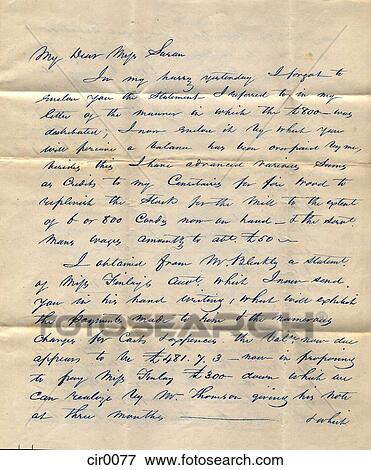 My Dear Miss Sarah
In my hurry yesterday I forgot to
enclose you the Statement I referred to in my
letter of the manner in which the £800 was
distributed, I now enclose it by which you
will perceive a balance has been overpaid by me,
besides this I have advanced various Sums
as Credits to my for fire wood to
replenish the Stock for the Mill to the extent
of 6 or 800 Cords now on hand - & the
Mans wages amounts to abt. £50 -
I obtained from Mr. a Statemt.
of Miss Finlay's Acct. which I now send
you in his hand writing, which will exhibit
the payments made to him & the numerous
charges for Costs & expences. the balce. now due
appears to be £481. 7. 3 - now in proposing
to pay Miss Finlay £300 down which we
can realize by Mr. Thomson giving his Note
at three months
& which
Fotosearch
cir0077 www.fotosearch.com